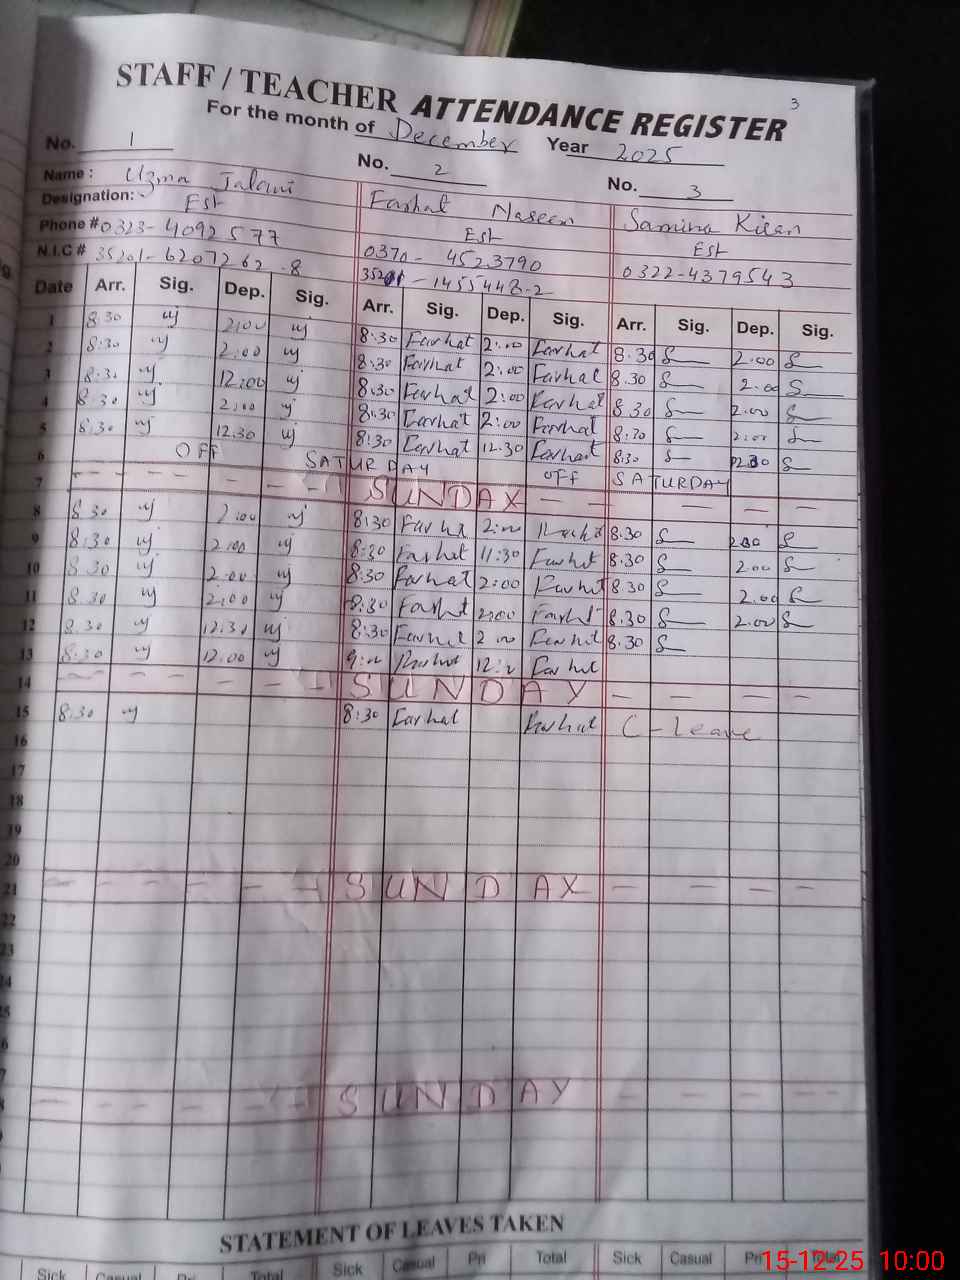 3
STAFF / TEACHER ATTENDANCE REGISTER
For the month of December Year 2025
No. 1 No. 2 No. 3
Name : Uzma Jalani Farhat Naseem Samina Kiran
Designation: Est Est Est
Phone # 0323-4092577 0370-4523790 0322-4379543
N.I.C # 35201-6207262-8 35201-1455448-2
Date Arr. Sig. Dep. Sig. Arr. Sig. Dep. Sig. Arr. Sig. Dep. Sig.
1 8:30 uj 2:00 uj 8:30 Farhat 2:00 Farhat 8.30 S 2.00 S
2 8:30 uj 2:00 uj 8:30 Farhat 2:00 Farhat 8.30 S 2.00 S
3 8:30 uj 12:00 uj 8:30 Farhat 2:00 Farhat 8.30 S 2.00 S
4 8:30 uj 2:00 uj 8:30 Farhat 2:00 Farhat 8:30 S 2:00 S
5 8:30 uj 12.30 uj 8:30 Farhat 12.30 Farhat 8:30 S S
6 OFF SATURDAY OFF SATURDAY
7 SUNDAY
8 8:30 uj 2:00 uj 8:30 Farhat 2:00 8.30 S S
9 8:30 uj 2:00 uj 8:30 Farhat 11:30 Farhat 8.30 S 2.00 S
10 8:30 uj 2:00 uj 8:30 Farhat 2:00 Farhat 8.30 S 2.00 S
11 8:30 uj 2:00 uj 8:30 Farhat 2:00 Farhat 8.30 S 2.00 S
12 8:30 uj 12.30 uj 8:30 Farhat 2:00 Farhat 8.30 S
13 8:30 uj 12.00 uj Farhat Farhat
14 SUNDAY
15 8:30 uj 8:30 Farhat Farhat C-Leave
16
17
18
19
20
21 SUNDAY
22
23
24
SUNDAY
STATEMENT OF LEAVES TAKEN
Sick Casual Pri Total Sick Casual Pri Total Sick Casual Pri Total
15-12-25 10:00